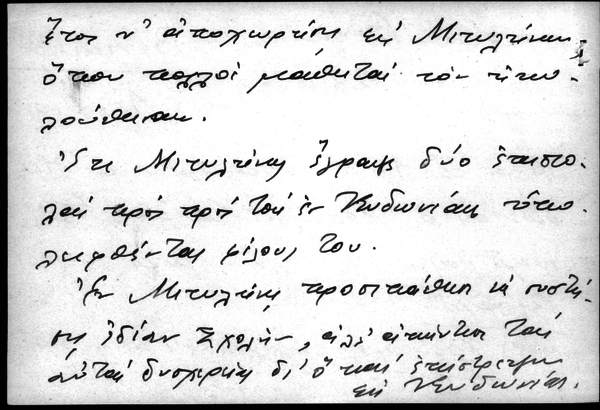 ἔτος ν' ἀποχωρήσῃ εἰς Μιτυλήνην
ὅπου πολλοὶ μαθηταὶ τὸν ἠκο-
λούθησαν.
Ἐκ Μιτυλήνης ἔγραψε δύο ἐπιστο-
λὰς πρὸς πρὸς τοὺς ἐν Κυδωνίαις ὑπο-
λειφθέντας φίλους του.
Ἐν Μιτυλήνῃ προσεπάθησε νὰ συστή-
σῃ ἰδίαν Σχολὴν, ἀλλ' ἀπήντησε τὰς
αὐτὰς δυσχερείας δι' ὃ καὶ ἐπέστρεψεν
εἰς Κυδωνίας.